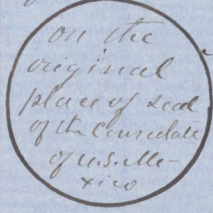 on the
original
place of seal
of the Consulate
of U.S. Me-
xico